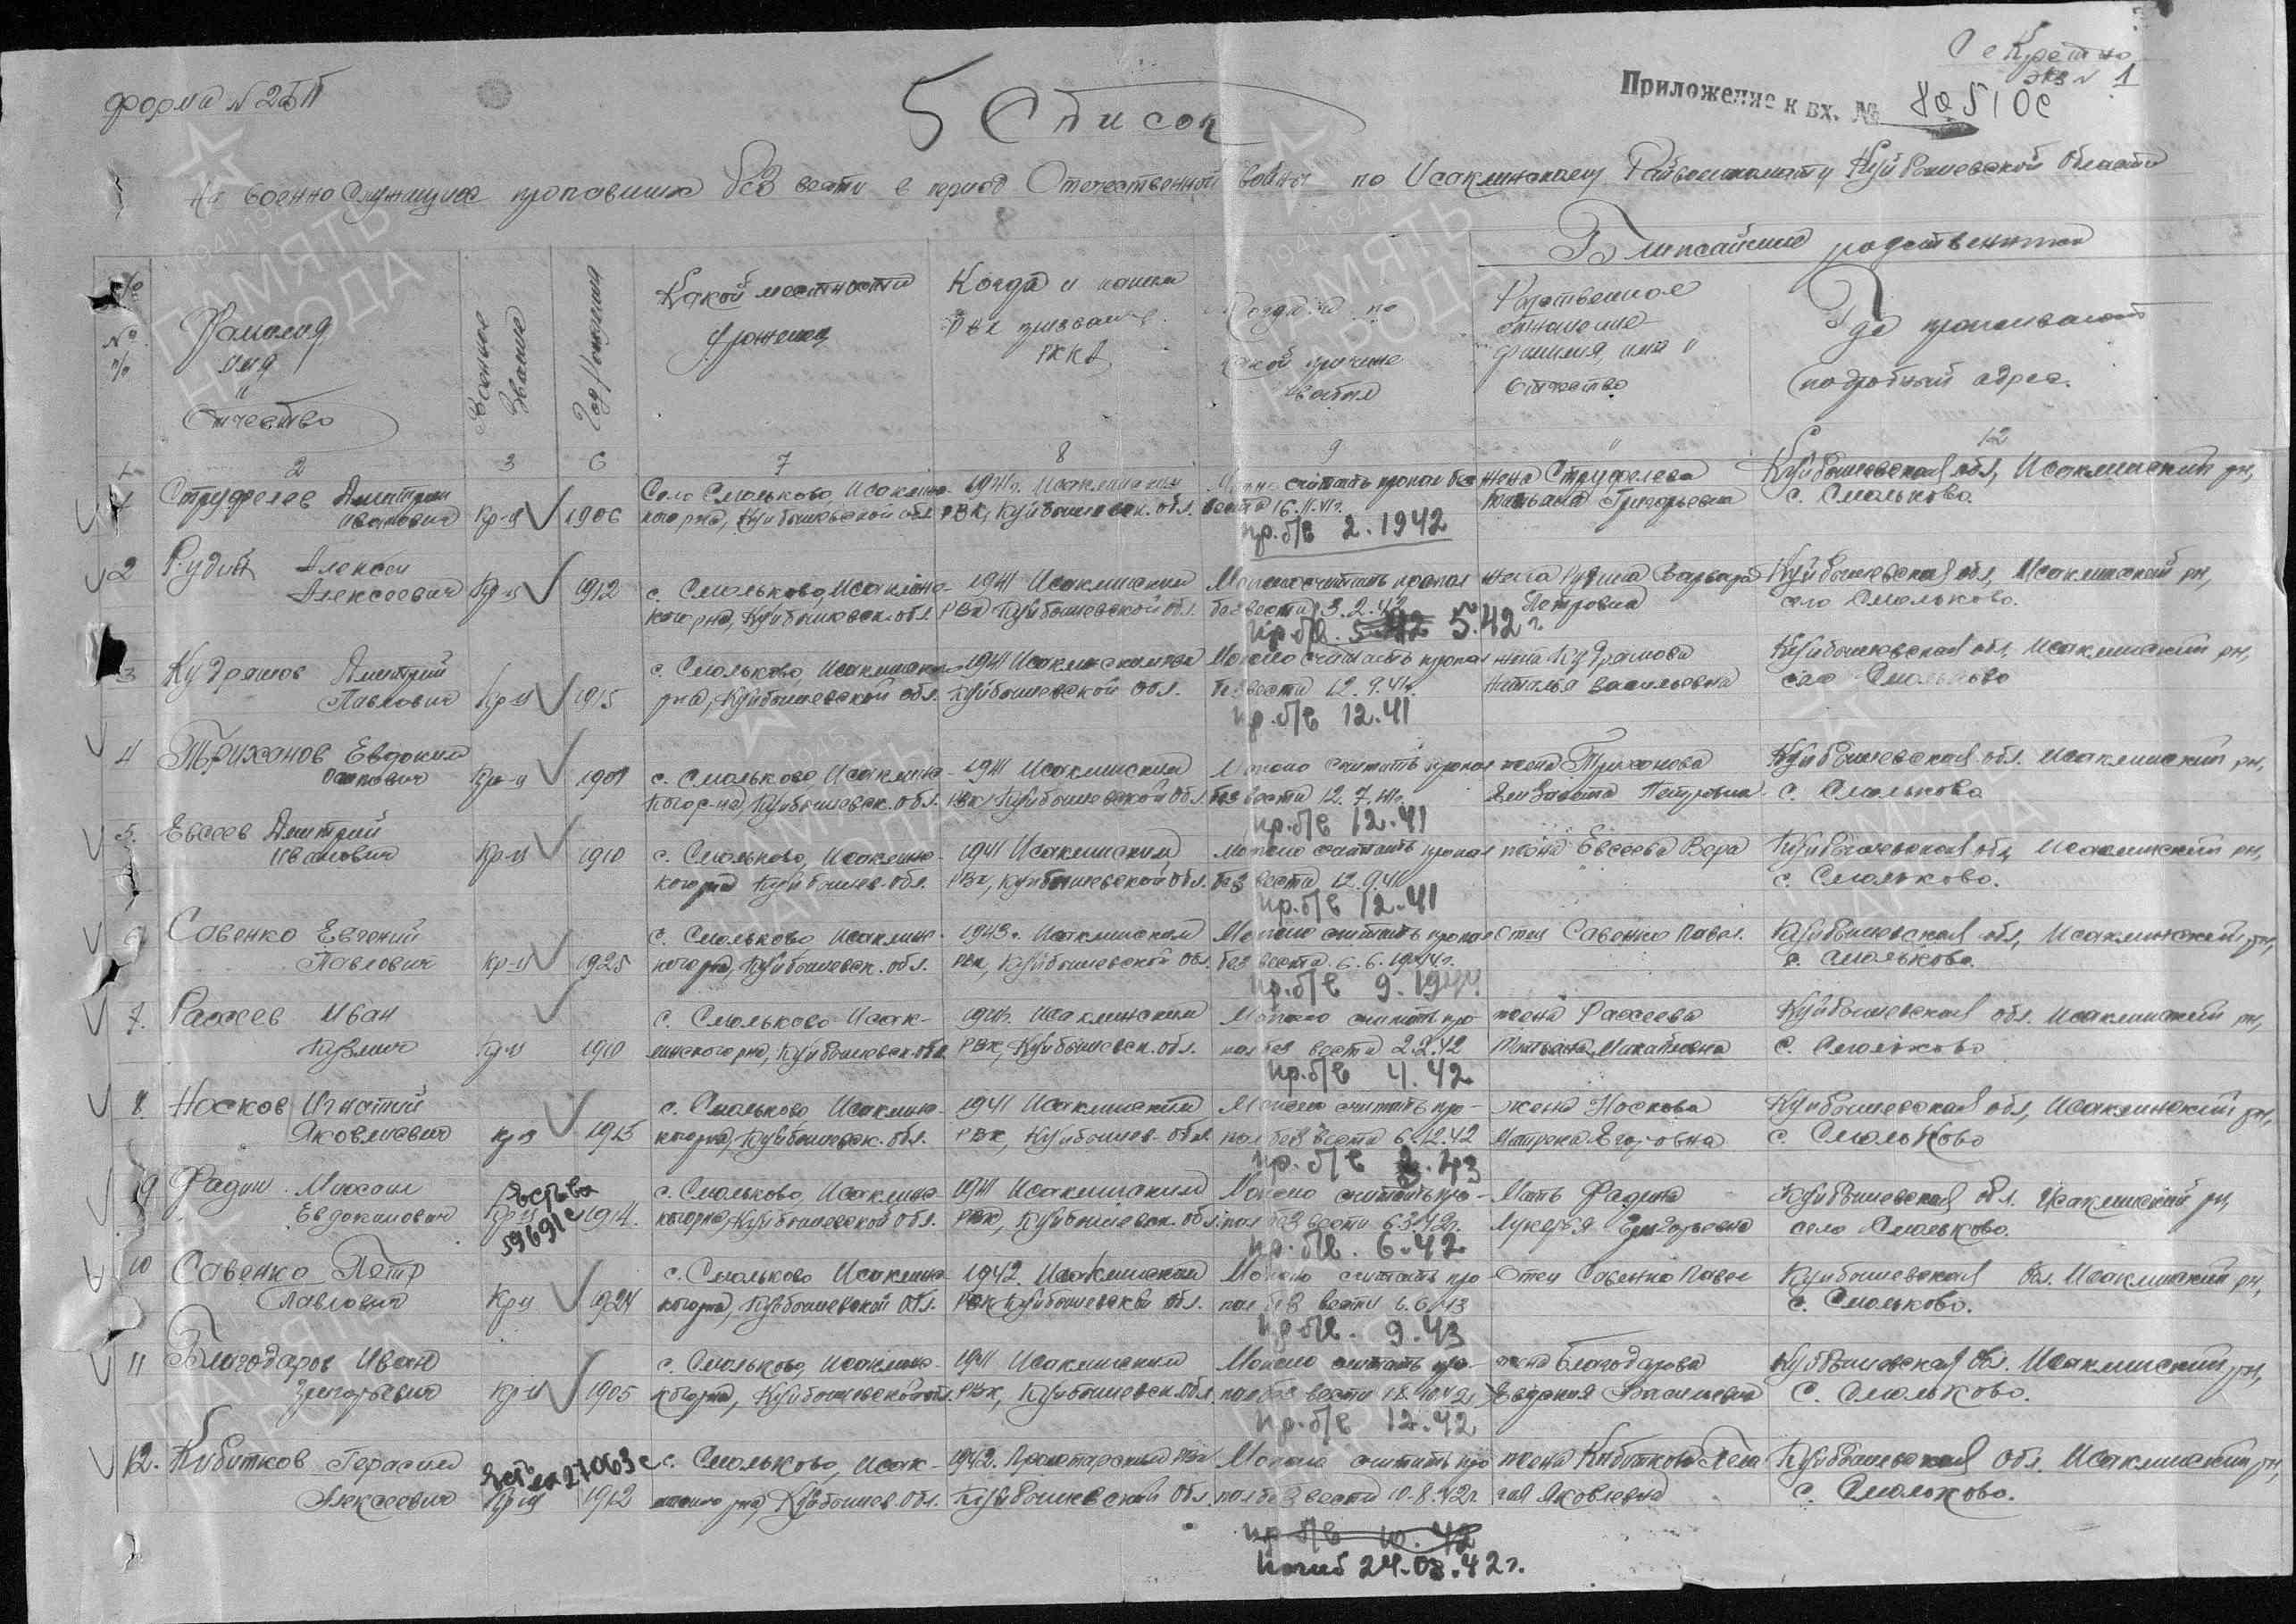 Секретно
экз N 1
форма N 2БП
Приложение к вх. № 80510с
5 Список
На военно служащих пропавших без вести в период Отечественной войны по Исаклинскому Райвоенкомату Куйбышевской области
№ Фамилия имя и Отчество
Военное звание
Год рождения
Какой местности уроженец
Когда и каким РВК призван в РККА
Когда и по какой причине выбыл
Ближайшие родственники
Родственное отношение фамилия, имя и отчество
Где проживают подробный адрес.
1 2 3 6 7 8 9 11 12
1 Струфелев Дмитрий Село Смольково, Исаклинс- 1941г. Исаклинским Можно считать пропал без жена Струфелева Куйбышевская обл, Исаклинский рн,
Иванович Кр-ц 1906 кого рна, Куйбышевской обл РВК, Куйбышевск. обл. вести 16.11. Татьяна Григорьевна с. Смольково.
пр. б/в 2.1942
2 Рудин Алексей
Алексеевич Кр-ц 1912 с. Смольково, Исаклинс- 1941 Исаклинским Можно считать пропал жена Рудина Варвара Куйбышевская обл, Исаклинский рн,
кого рна, Куйбышевск. обл. РВК Куйбышевской обл. без вести 3.2.42 Петровна село Смольково.
пр. б/в. 5.42 5.42 г.
3 Кудряшов Дмитрий с. Смольково, Исаклинск 1941 Исаклинским РВК Можно считать пропал жена Кудряшова Куйбышевская обл, Исаклинский рн,
Павлович Кр-ц 1915 рна, Куйбышевской обл. Куйбышевской обл. без вести 12.9.41г. Наталья Васильевна село Смольково
пр. б/в 12.41
4 Триханов Евдоким
Осипович Кр-ц 1901 с. Смольково Исаклинс- 1941 Исаклинским Можно считать пропал жена Триханова Куйбышевская обл. Исаклинский рн,
кого р-на, Куйбышевск. обл. РВК Куйбышевской обл. без вести 12.7.41г. Елизавета Петровна с. Смольково
пр. б/в 12.41
5. Евсеев Дмитрий
Иванович Кр-ц 1910 с. Смольково, Исаклинс- 1941 Исаклинским Можно считать пропал жена Евсеева Вера Куйбышевская обл, Исаклинский рн,
кого рна Куйбышев. обл. РВК, Куйбышевской обл. без вести 12.9.41 с. Смольково.
пр. б/в 12.41
6 Савенко Евгений с. Смольково Исаклинс- 1943г. Исаклинским Можно считать пропал Отец Савенко Павел. Куйбышевская обл, Исаклинский рн,
Павлович кр-ц 1925 кого рна, Куйбышевск. обл. РВК, Куйбышевской обл. без вести 6.6.1944г. с. Смольково.
пр. б/в 9.1944.
7. Рассеев Иван с. Смольково Исак- Исаклинским Можно считать про- жена Рассеева Куйбышевская обл. Исаклинский рн,
Кузьмич Кр-ц 1910 линского рна, Куйбышевск. обл РВК, Куйбышевск. обл. пал без вести 2.2.42 Татьяна Михайловна с. Смольково
пр. б/в 4.42
8. Носков Игнатий с. Смольково Исаклинс- 1941 Исаклинским Можно считать про- жена Носкова Куйбышевская обл, Исаклинский рн,
Яковлевич кр-ц 1913 кого рна, Куйбышевск. обл. РВК, Куйбышев. обл. пал без вести 6.12.42 Матрена Егоровна с. Смольково
пр. б/в 2.43
9 Фадин Михаил с. Смольково, Исаклинс- 1941 Исаклинским Можно считать про- Мать Фадина Куйбышевская обл. Исаклинский рн,
Евдокимович Кр-ц 59691с 1914. кого рна, Куйбышевской обл. РВК, Куйбышевск. обл. пал без вести 6.3.42г. Лукерья Григорьевна село Смольково.
пр. б/в. 6.42
10 Савенко Петр с. Смольково Исаклинс- 1942 Исаклинским Можно считать про Отец Савенко Павел Куйбышевская обл. Исаклинский рн,
Павлович Кр-ц 1924 кого рна, Куйбышевской обл. РВК Куйбышевской обл. пал без вести 6.6.43 с. Смольково.
пр. б/в. 9.43
11 Благодаров Иван с. Смольково, Исаклинс- 1941 Исаклинским Можно считать про- жена Благодарова Куйбышевская обл. Исаклинский рн,
Григорьевич Кр-ц 1905 кого рна, Куйбышевской обл. РВК, Куйбышевск. обл. пал без вести Евдокия Васильевна с. Смольково.
пр. б/в 12.42
12. Кибитков Герасим Есть 27063с с. Смольково, Исак- 1942. Пролетарским РВК Можно считать про жена Кибиткова Пела Куйбышевская обл. Исаклинский рн,
Алексеевич Кр-ц 1912 линского рна, Куйбышев. обл. Куйбышевской обл. пал без вести 10.8.42г. гея Яковлевна с. Смольково.
пр. б/в 10.42
Погиб 24.08.42г.
ПАМЯТЬ НАРОДА
1941-1945